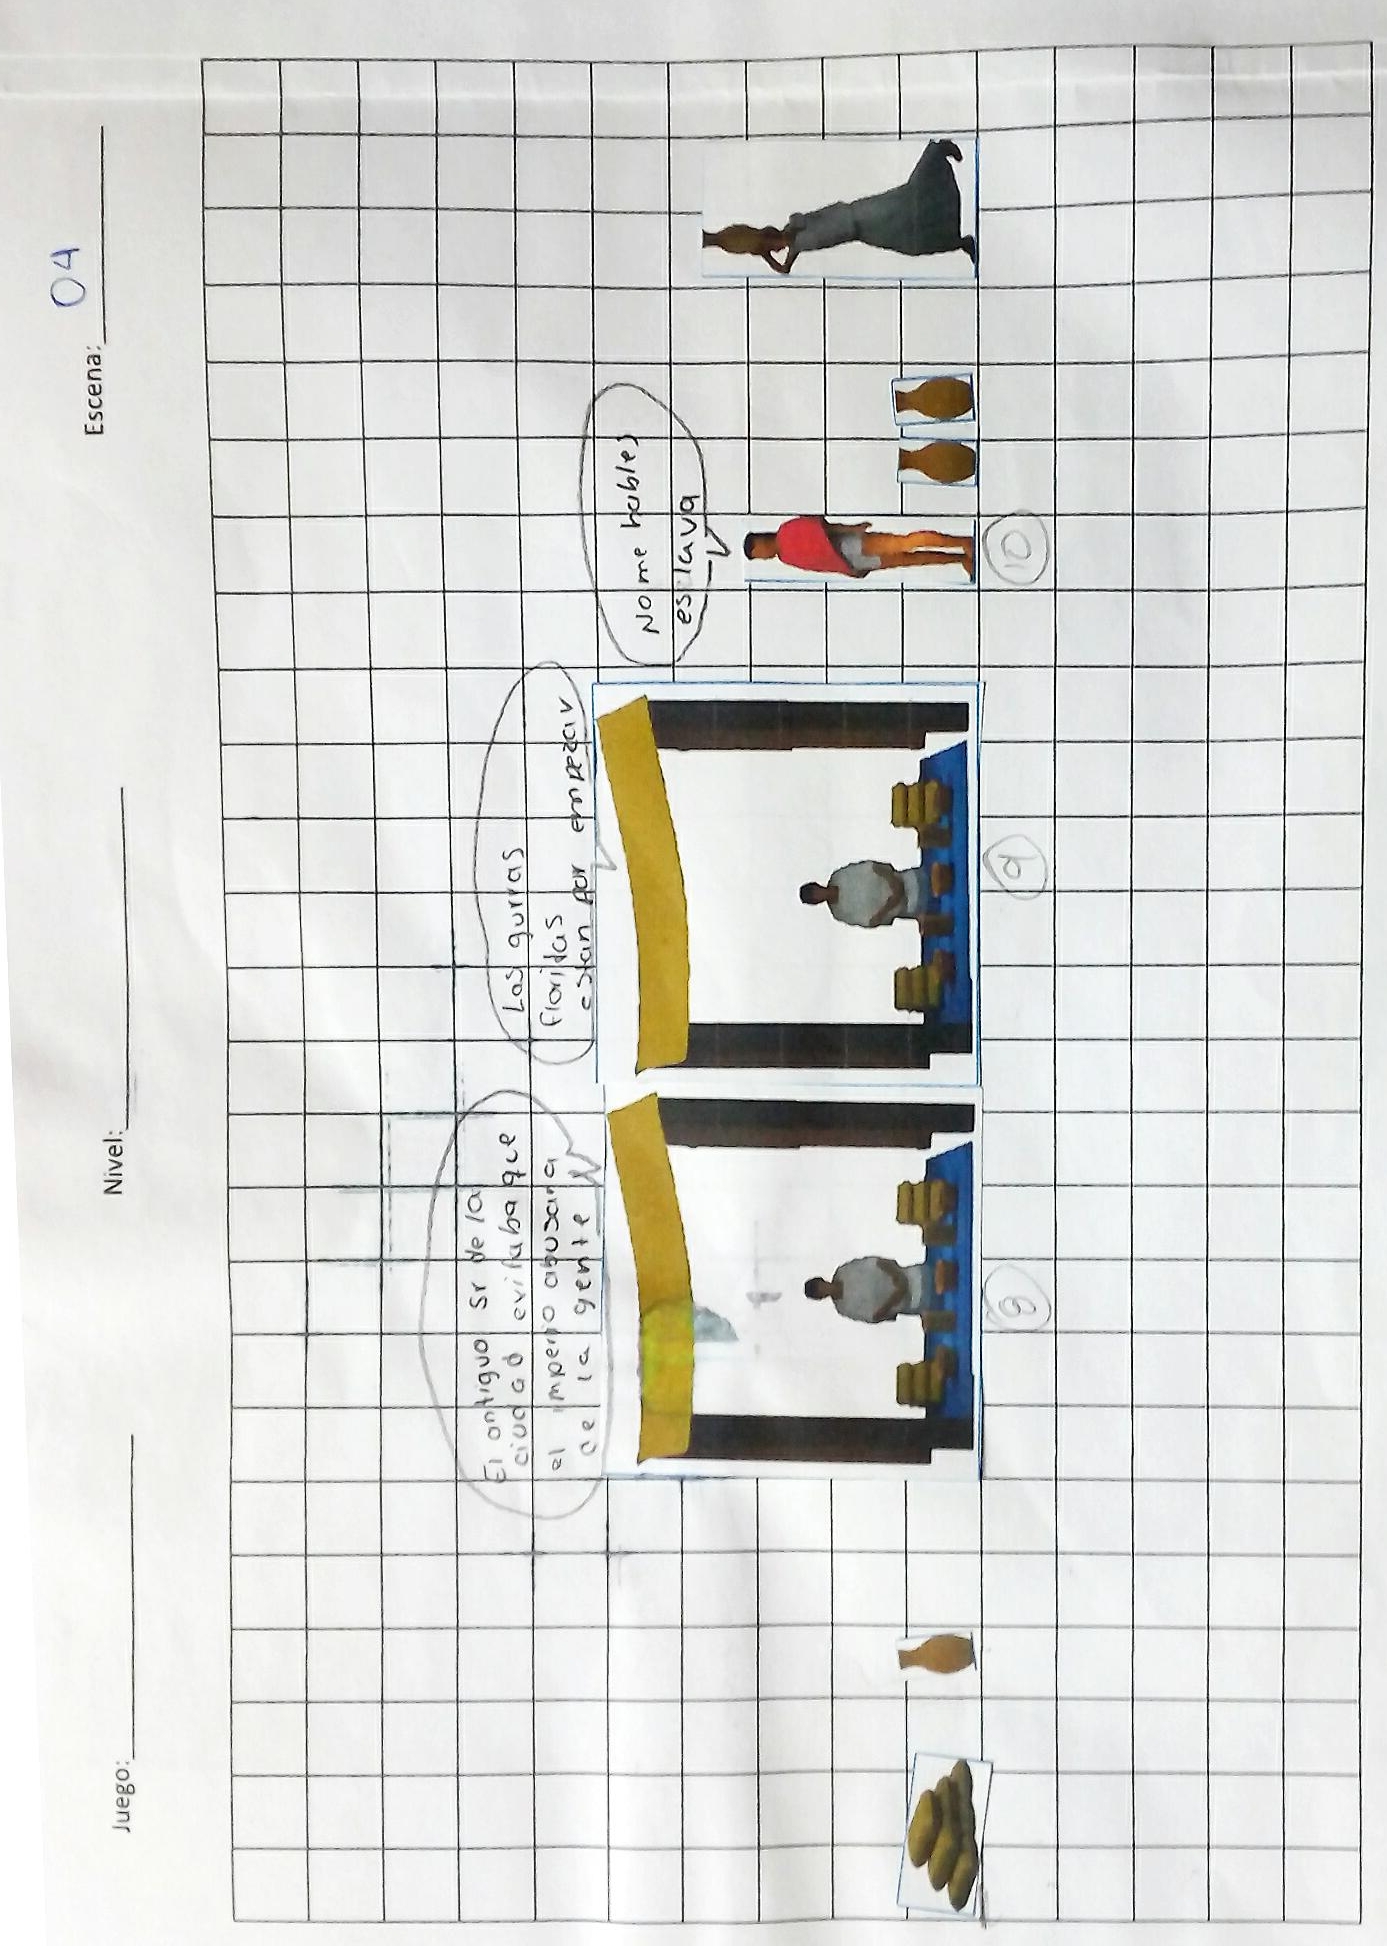 Juego:
Nivel:
Escena: 04
El antiguo Sr de la
ciudad evitaba que
el imperio abusara
de la gente
Las gurras
floridas
estan por empezar
No me hables
esclava
8
9
10